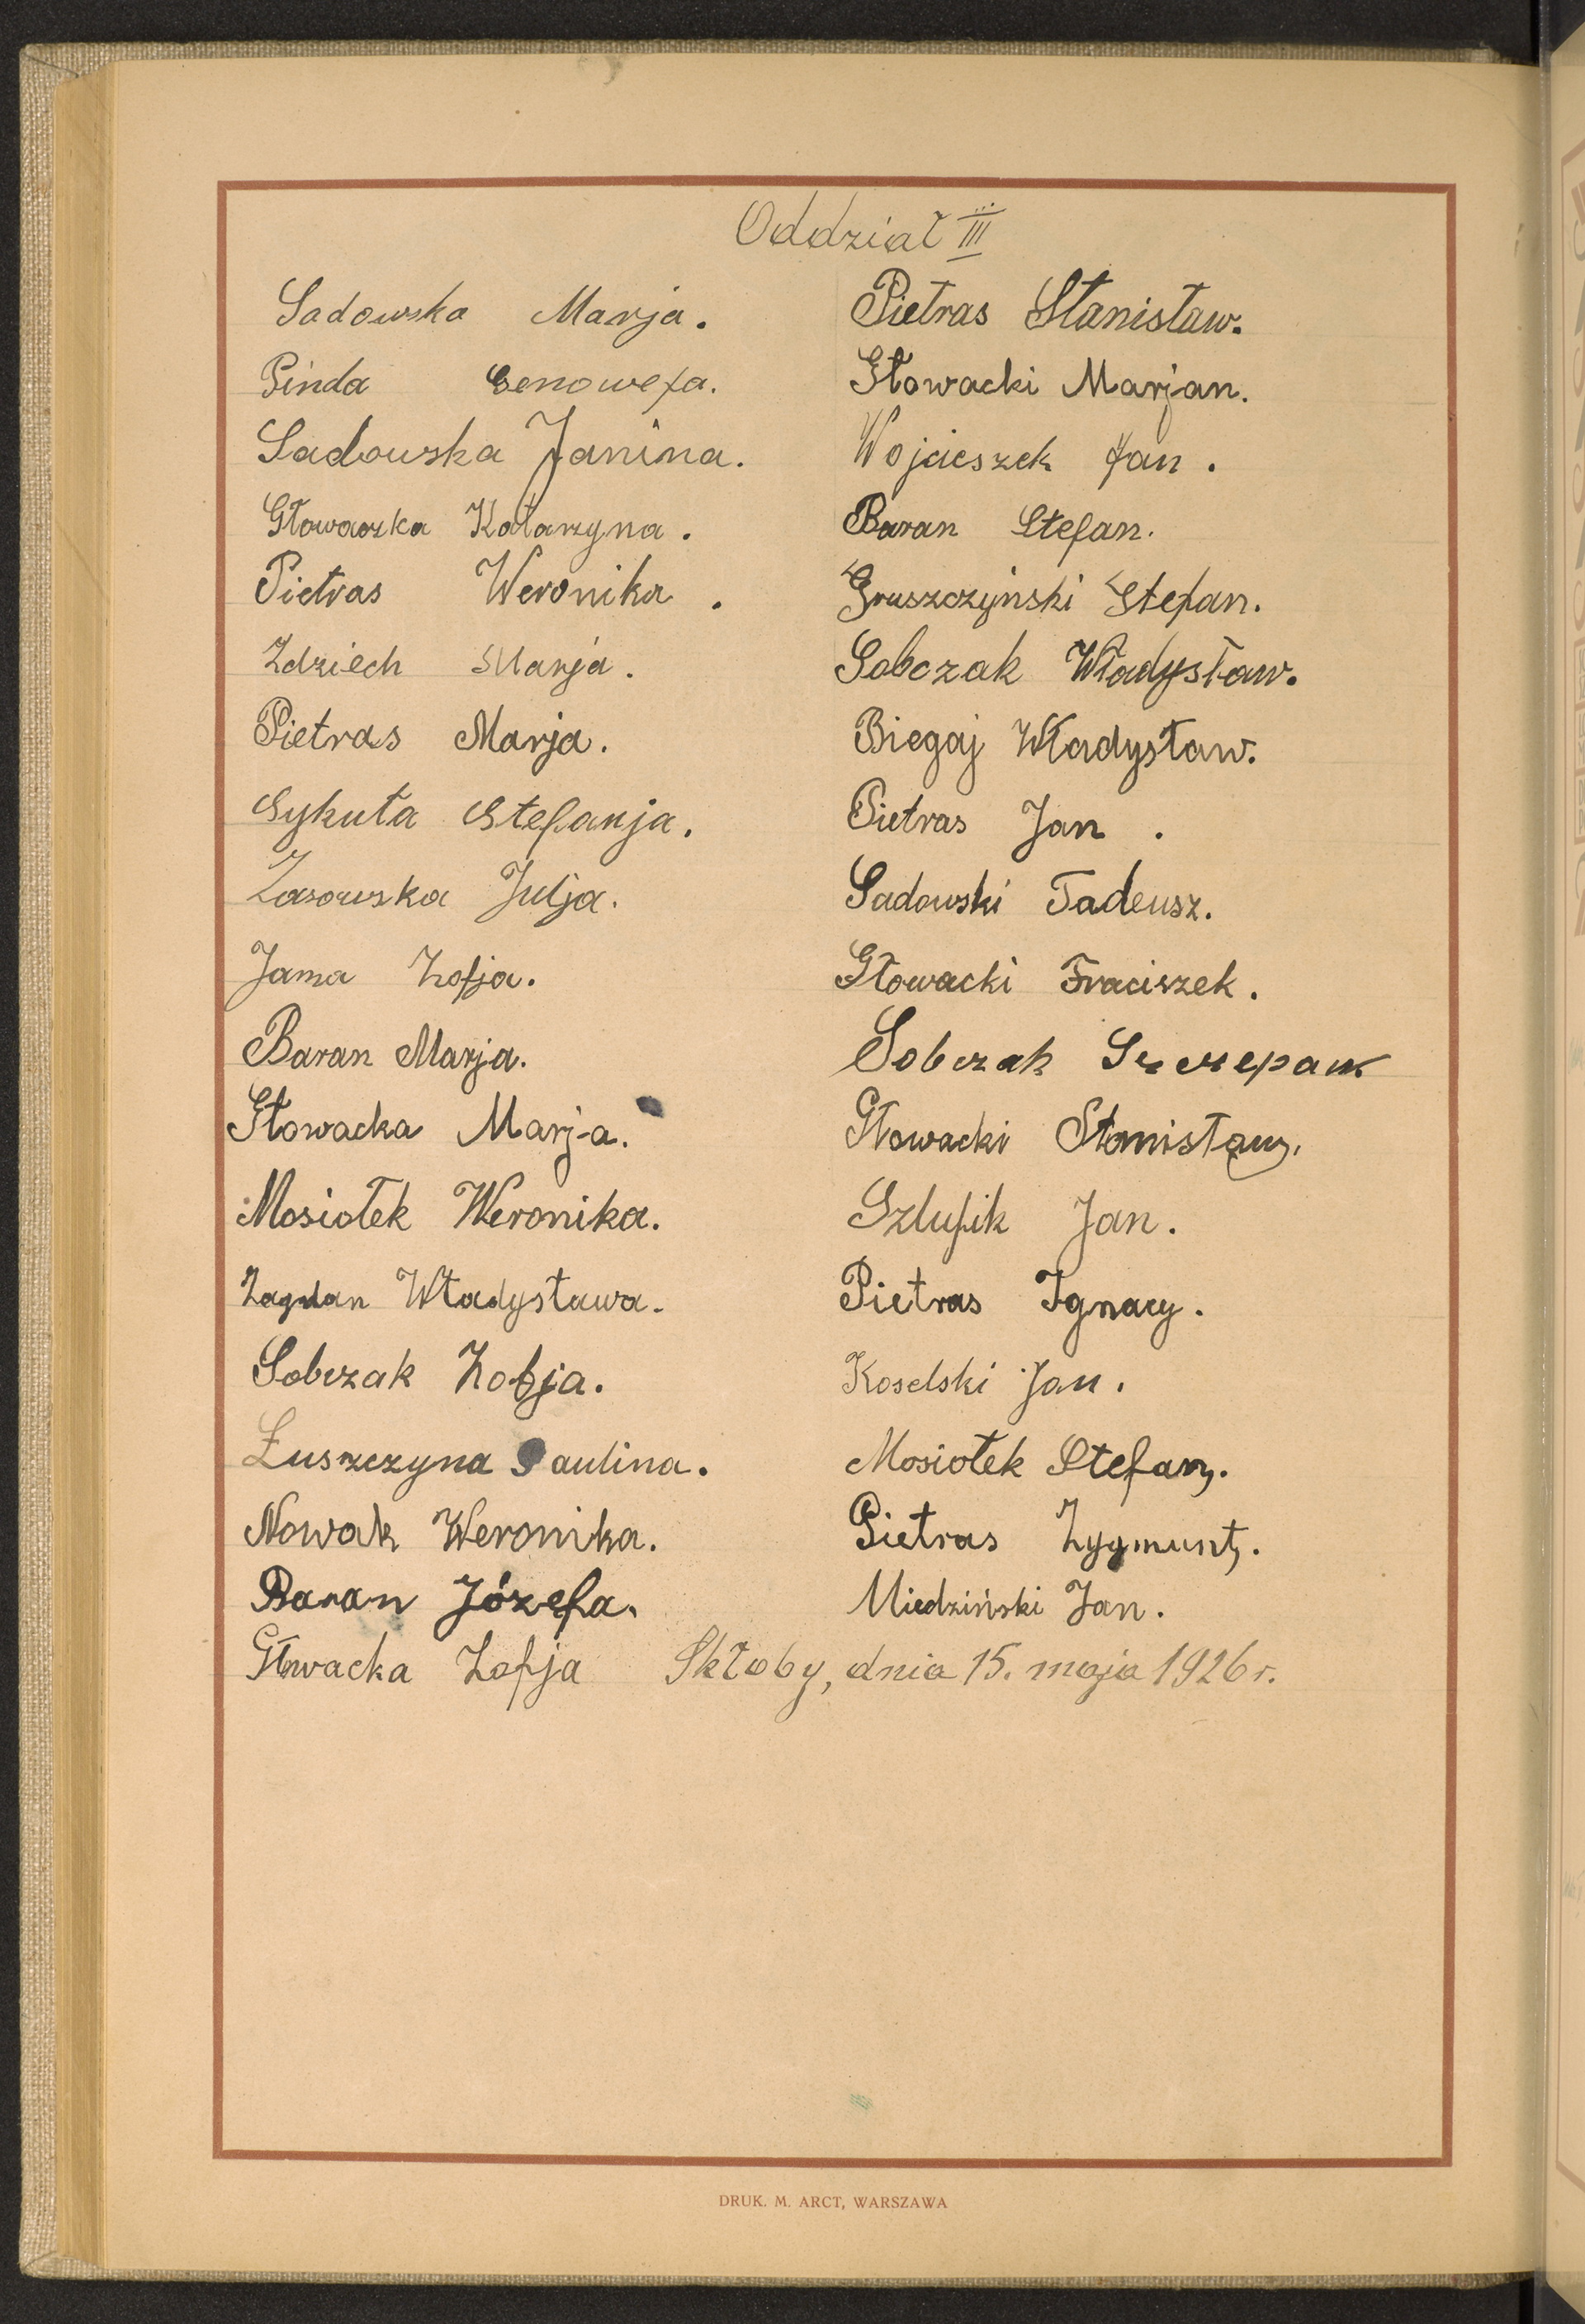 Oddział III
Sadowska Marja.
Pinda Genowefa.
Sadowska Janina.
Głowacka Katarzyna.
Pietras Weronika.
Zdziech Marja.
Pietras Marja.
Sykuta Stefanja.
Lasowska Julja.
Jama Zofja.
Baran Marja.
Głowacka Marja.
Mosiołek Weronika.
Zagdan Władysława.
Sobczak Zofja.
Łuszczyna Paulina.
Nowak Weronika.
Baran Józefa.
Głwacka Zofja
Pietras Stanisław.
Głowacki Marjan.
Wojcieszek Jan.
Baran Stefan.
Gruszczyński Stefan.
Sobczak Władysław.
Biegaj Władysław.
Pietras Jan.
Sadowski Tadeusz.
Głowacki Fraciszek.
Sobczak
Głowacki Stanisław.
Szlufik Jan.
Pietras Ignacy.
Koselski Jan.
Mosiołek Stefan.
Pietras Zygmunt.
Miedziński Jan.
Skłoby, dnia 15. maja 1926 r.
DRUK. M. ARCT, WARSZAWA